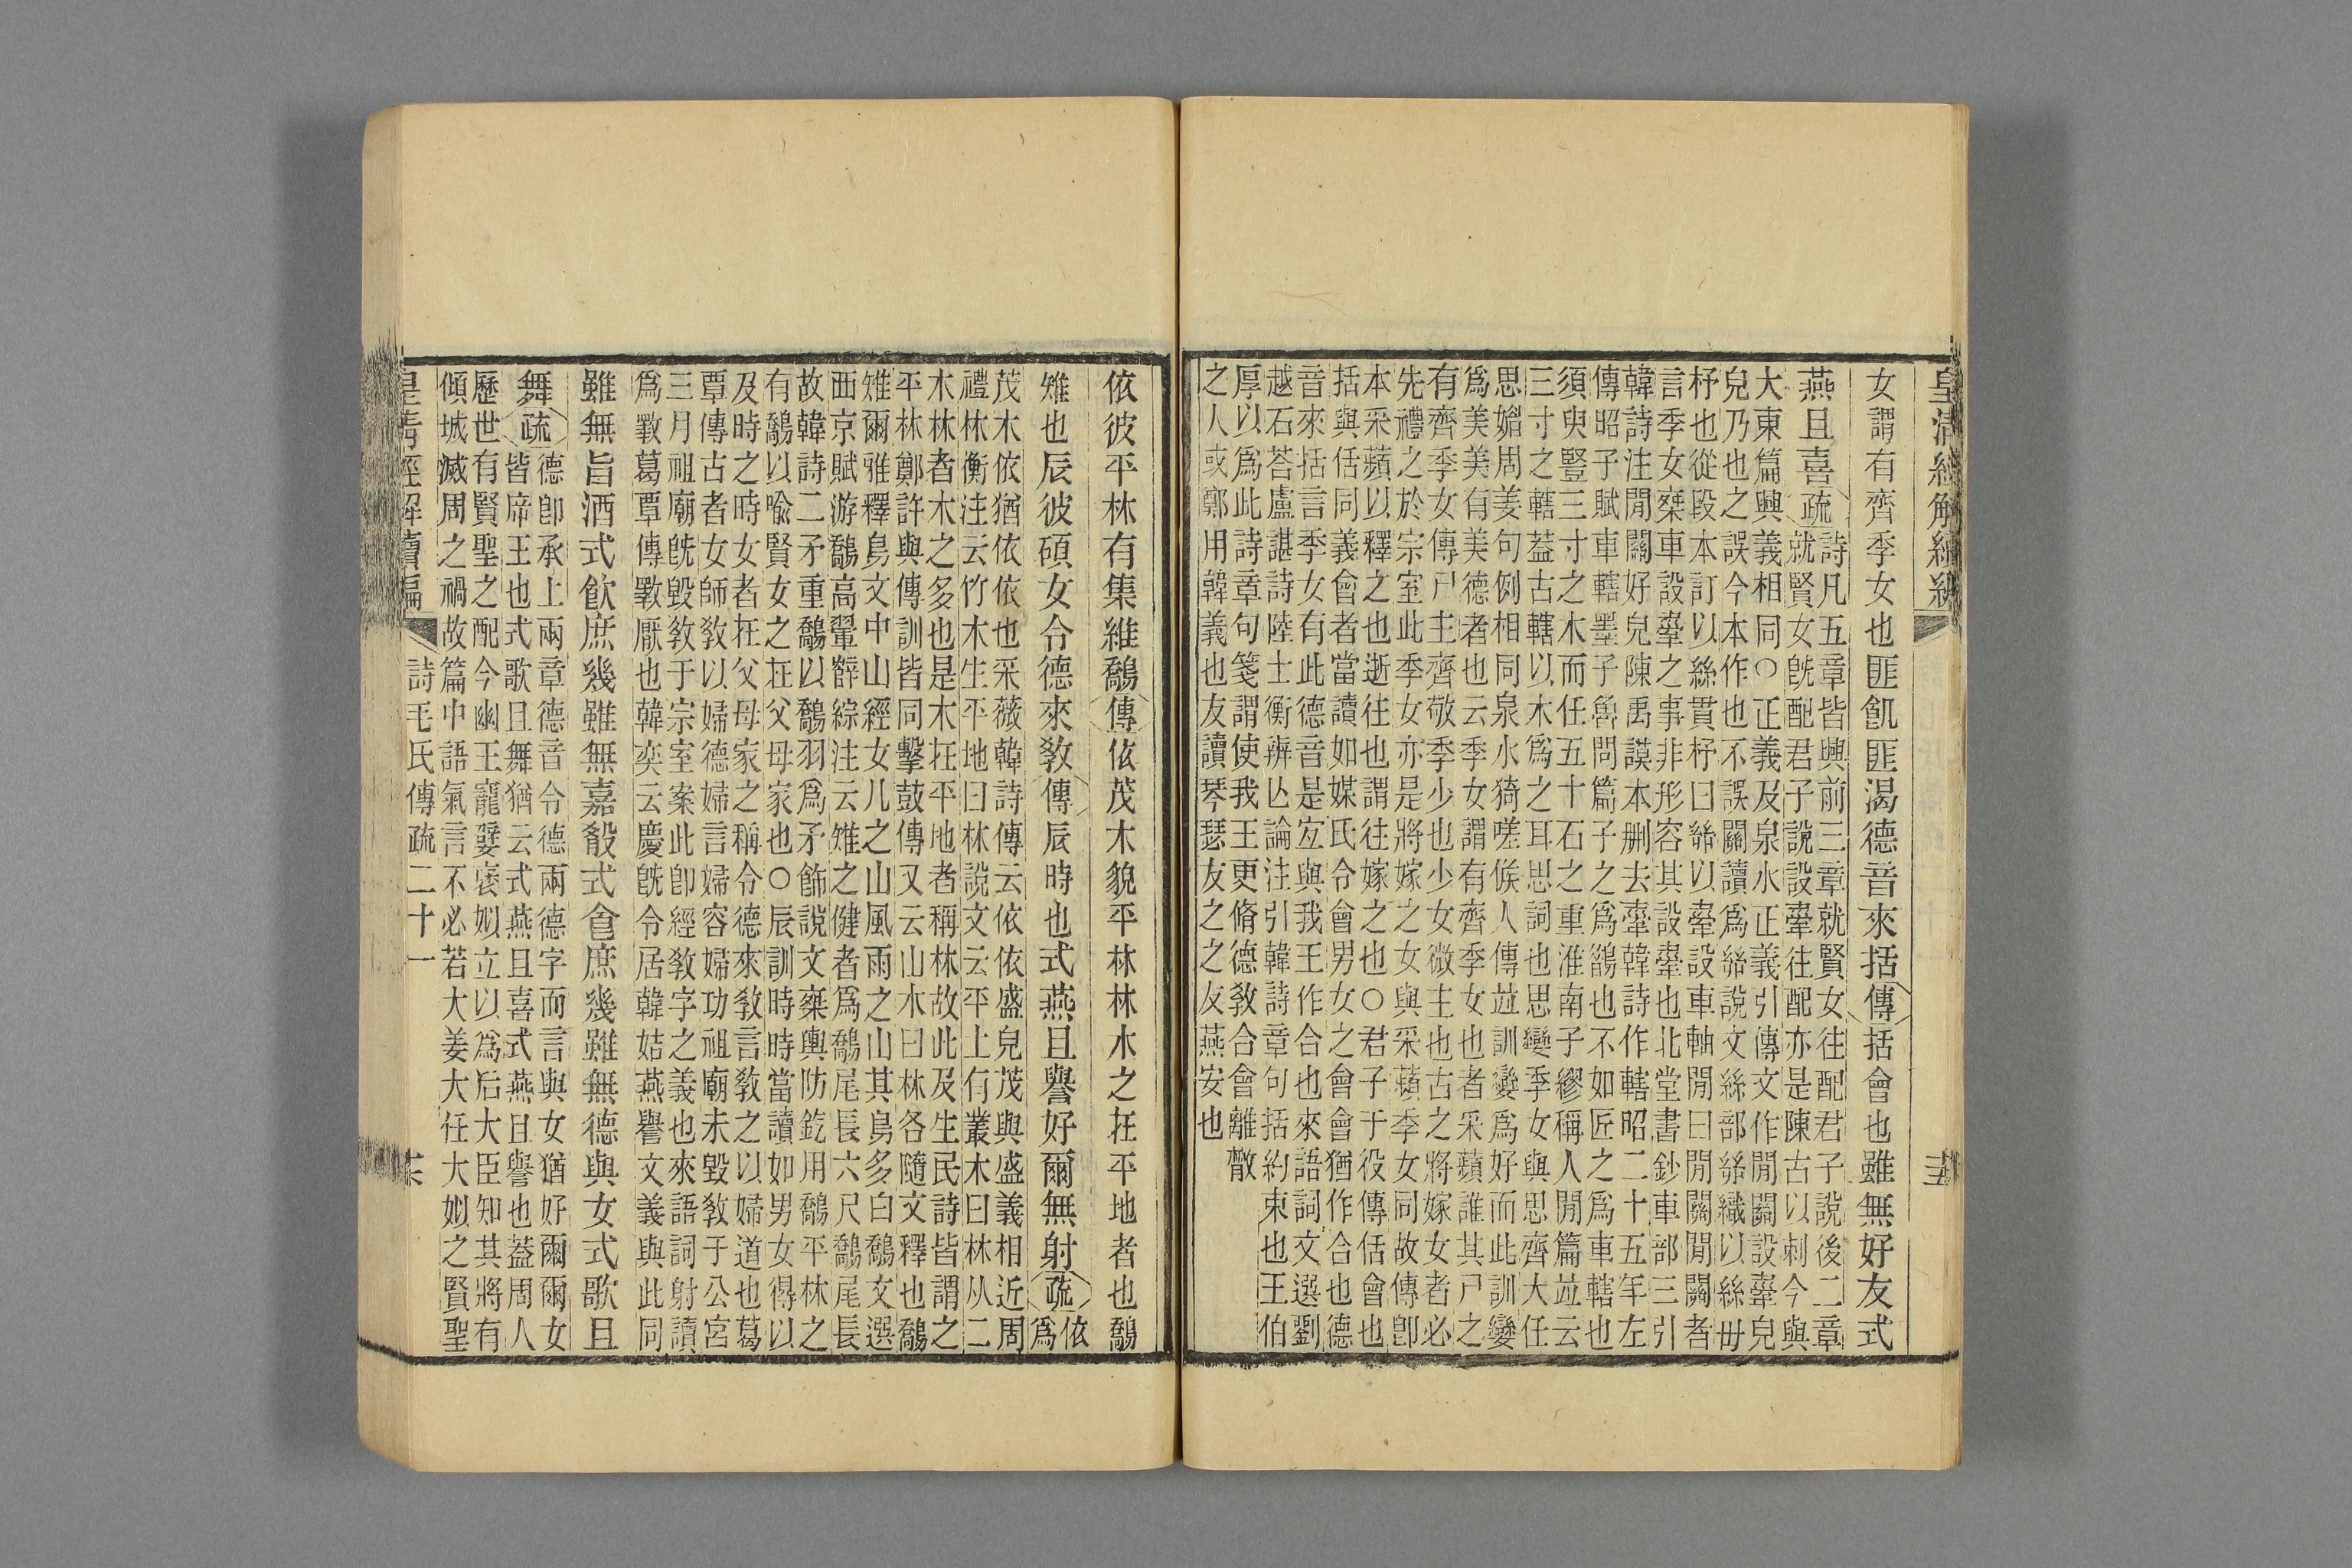 皇清經解續編
女謂有齊季女也匪飢匪渴德音來括傳括會也雖無好友式
燕且喜疏詩凡五章皆興前三章就賢女往配君子說後二章
就賢女旣配君子說設舝往配亦是陳古以刺今與
大東篇興義相同○正義及泉水正義引傳文作閒關設舝皃
皃乃也之誤今本作也不誤關讀爲𢇇說文絲部𢇇織以絲毌
杼也從段本訂以絲貫杼曰𢇇以舝設車軸閒曰閒關閒關者
言季女椉車設舝之事非形容其設舝也北堂書鈔車部三引
韓詩注閒關好皃陳禹謨本刪去舝韓詩作轄昭二十五年左
傳昭子賦車轄墨子魯問篇子之爲鵲也不如匠之爲車轄也
須臾豎三寸之木而任五十石之重淮南子繆稱人閒篇竝云
三寸之轄葢古轄以木爲之耳思詞也思孌季女與思齊大任
思媚周姜句例相同泉水猗嗟候人傳竝訓孌爲好而此訓孌
爲美美有美德者也云季女謂有齊季女也者采蘋誰其尸之
有齊季女傳尸主齊敬季少也少女微主也古之將嫁女者必
先禮之於宗室此季女亦是將嫁之女與采蘋季女同故傳卽
本采蘋以釋之也逝往也謂往嫁之也○君子于役傳佸會也
括與佸同義會者當讀如媒氏令會男女之會會猶作合也德
音來括言季女有此德音是宐與我王作合也來語詞文選劉
越石荅盧諶詩陸士衡辨亾論注引韓詩章句括約束也王伯
厚以爲此詩章句箋謂使我王更脩德敎合會離散
之人或鄭用韓義也友讀琴瑟友之之友燕安也
依彼平林有集維鷮傳依茂木貌平林林木之在平地者也鷮
雉也辰彼碩女令德來敎傳辰時也式燕且譽好爾無射疏依
爲
茂木依猶依依也采薇韓詩傳云依依盛皃茂與盛義相近周
禮林衡注云竹木生平地曰林說文云平土有叢木曰林从二
木林者木之多也是木在平地者稱林故此及生民詩皆謂之
平林鄭許與傳訓皆同擊鼓傳又云山木曰林各隨文釋也鷮
雉爾雅釋鳥文中山經女儿之山風雨之山其鳥多白鷮文選
西京賦游鷮高翬薛綜注云雉之健者爲鷮尾長六尺鷮尾長
故韓詩二矛重鷮以鷮羽爲矛飾說文椉輿防釳用鷮平林之
有鷮以喩賢女之在父母家也○辰訓時時當讀如男女得以
及時之時女者在父母家之稱令德來敎言敎之以婦道也葛
覃傳古者女師敎以婦德婦言婦容婦功祖廟未毀敎于公宮
三月祖廟旣毀敎于宗室案此卽經敎字之義也來語詞射讀
爲斁葛覃傳斁厭也韓奕云慶旣令居韓姞燕譽文義與此同
雖無旨酒式飮庶幾雖無嘉殽式食庶幾雖無德與女式歌且
舞疏德卽承上兩章德音令德兩德字而言與女猶好爾爾女
皆席王也式歌且舞猶云式燕且喜式燕且譽也葢周人
歷世有賢聖之配今幽王寵嬖褒姒立以爲后大臣知其將有
傾城滅周之禍故篇中語氣言不必若大姜大任大姒之賢聖
皇清經解續編 詩毛氏傳疏二十一